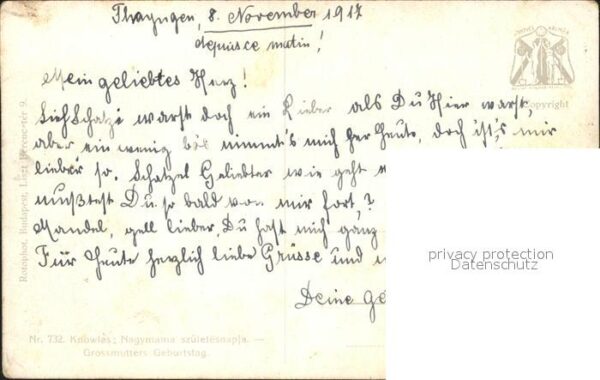 Thayngen, 8. November 1917
depuis ce matin!
Mein geliebtes Herz!
Lieb Schatzi warst doch ein Lieber als Du Hier warst,
aber ein wenig bös nimmt's mich her heute, doch ist's mir
lieber so. Schatzel Geliebter wie geht
mußtest Du so bald von mir fort,?
Mandel, gell lieber, Du hast mich ganz
Für heute herzlich liebe Grüsse und
Deine
copyright
Rotophot, Budapest,
privacy protection
Datenschutz
Nr. 732. Knowles: Nagymama születésnapja. —
Grossmutters Geburtstag.